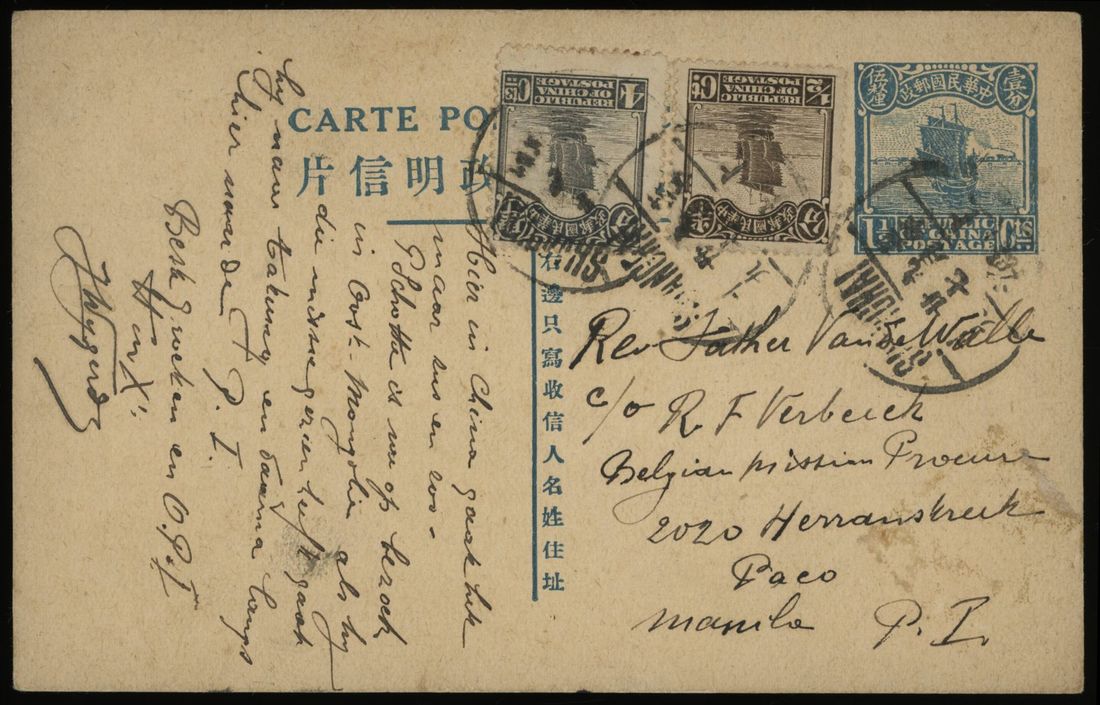 CARTE PO
政明信片
右邊只寫收信人名姓住址
4 CTS
REPUBLIC
OF CHINA
POSTAGE
½ CT
REPUBLIC
OF CHINA
POSTAGE
中華民國郵政
壹分
伍釐
1½ CTS
REPUBLIC
OF CHINA
POSTAGE
SHANGHAI
SHANGHAI
SHANGHAI
Rev Father Van de Walle
c/o R. F Verbeeck
Belgian Mission Procure
2020 Herranstreet
Paco
Manila P. I.
Hier in China gaat het
maar zus en zoo-
P Schotte is nu op bezoek
in Oost-Mongolie als hy
die missie gezien heeft gaat
hy naar Takung en daarna langs
hier naar de P. I.
Beste groeten en
in X°.